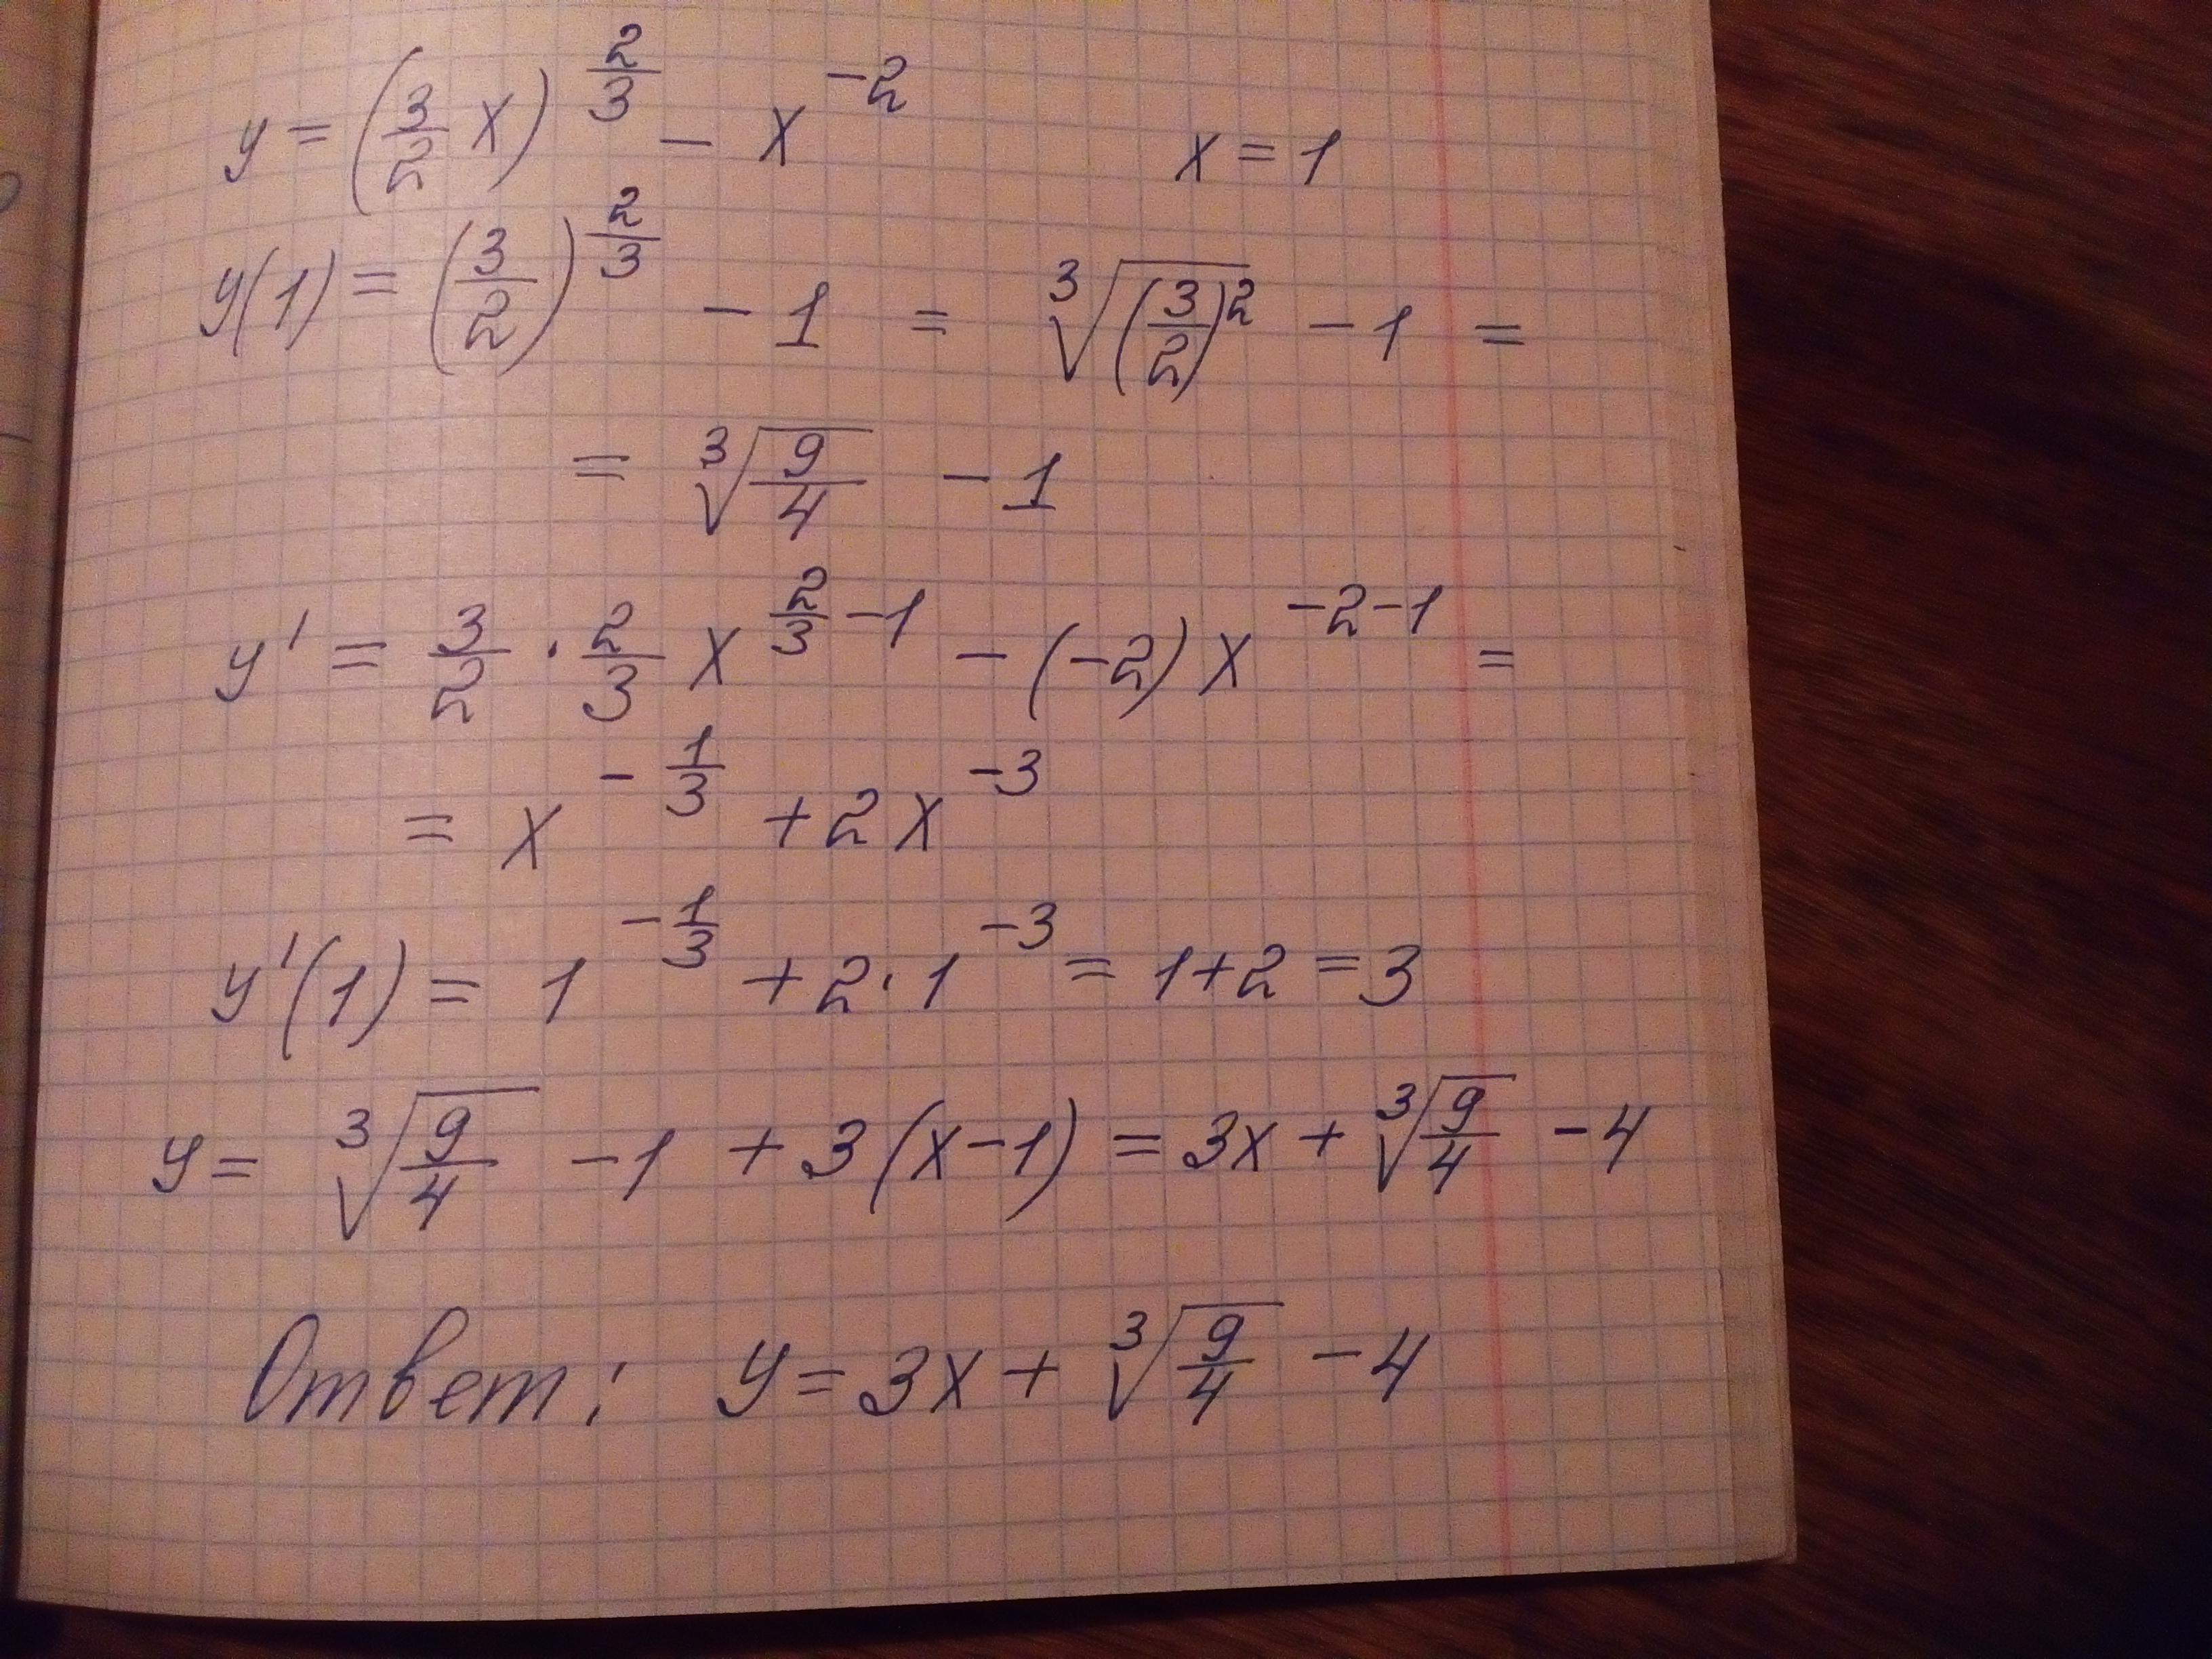 y = (3/2 x)^(2/3) − x^(−2)    x = 1
y(1) = (3/2)^(2/3) − 1 = ∛((3/2)^2) − 1 =
= ∛(9/4) − 1
y' = 3/2 · 2/3 x^(2/3 − 1) − (−2) x^(−2−1) =
= x^(−1/3) + 2x^(−3)
y'(1) = 1^(−1/3) + 2·1^(−3) = 1+2 = 3
y = ∛(9/4) − 1 + 3(x−1) = 3x + ∛(9/4) − 4
Ответ: y = 3x + ∛(9/4) − 4